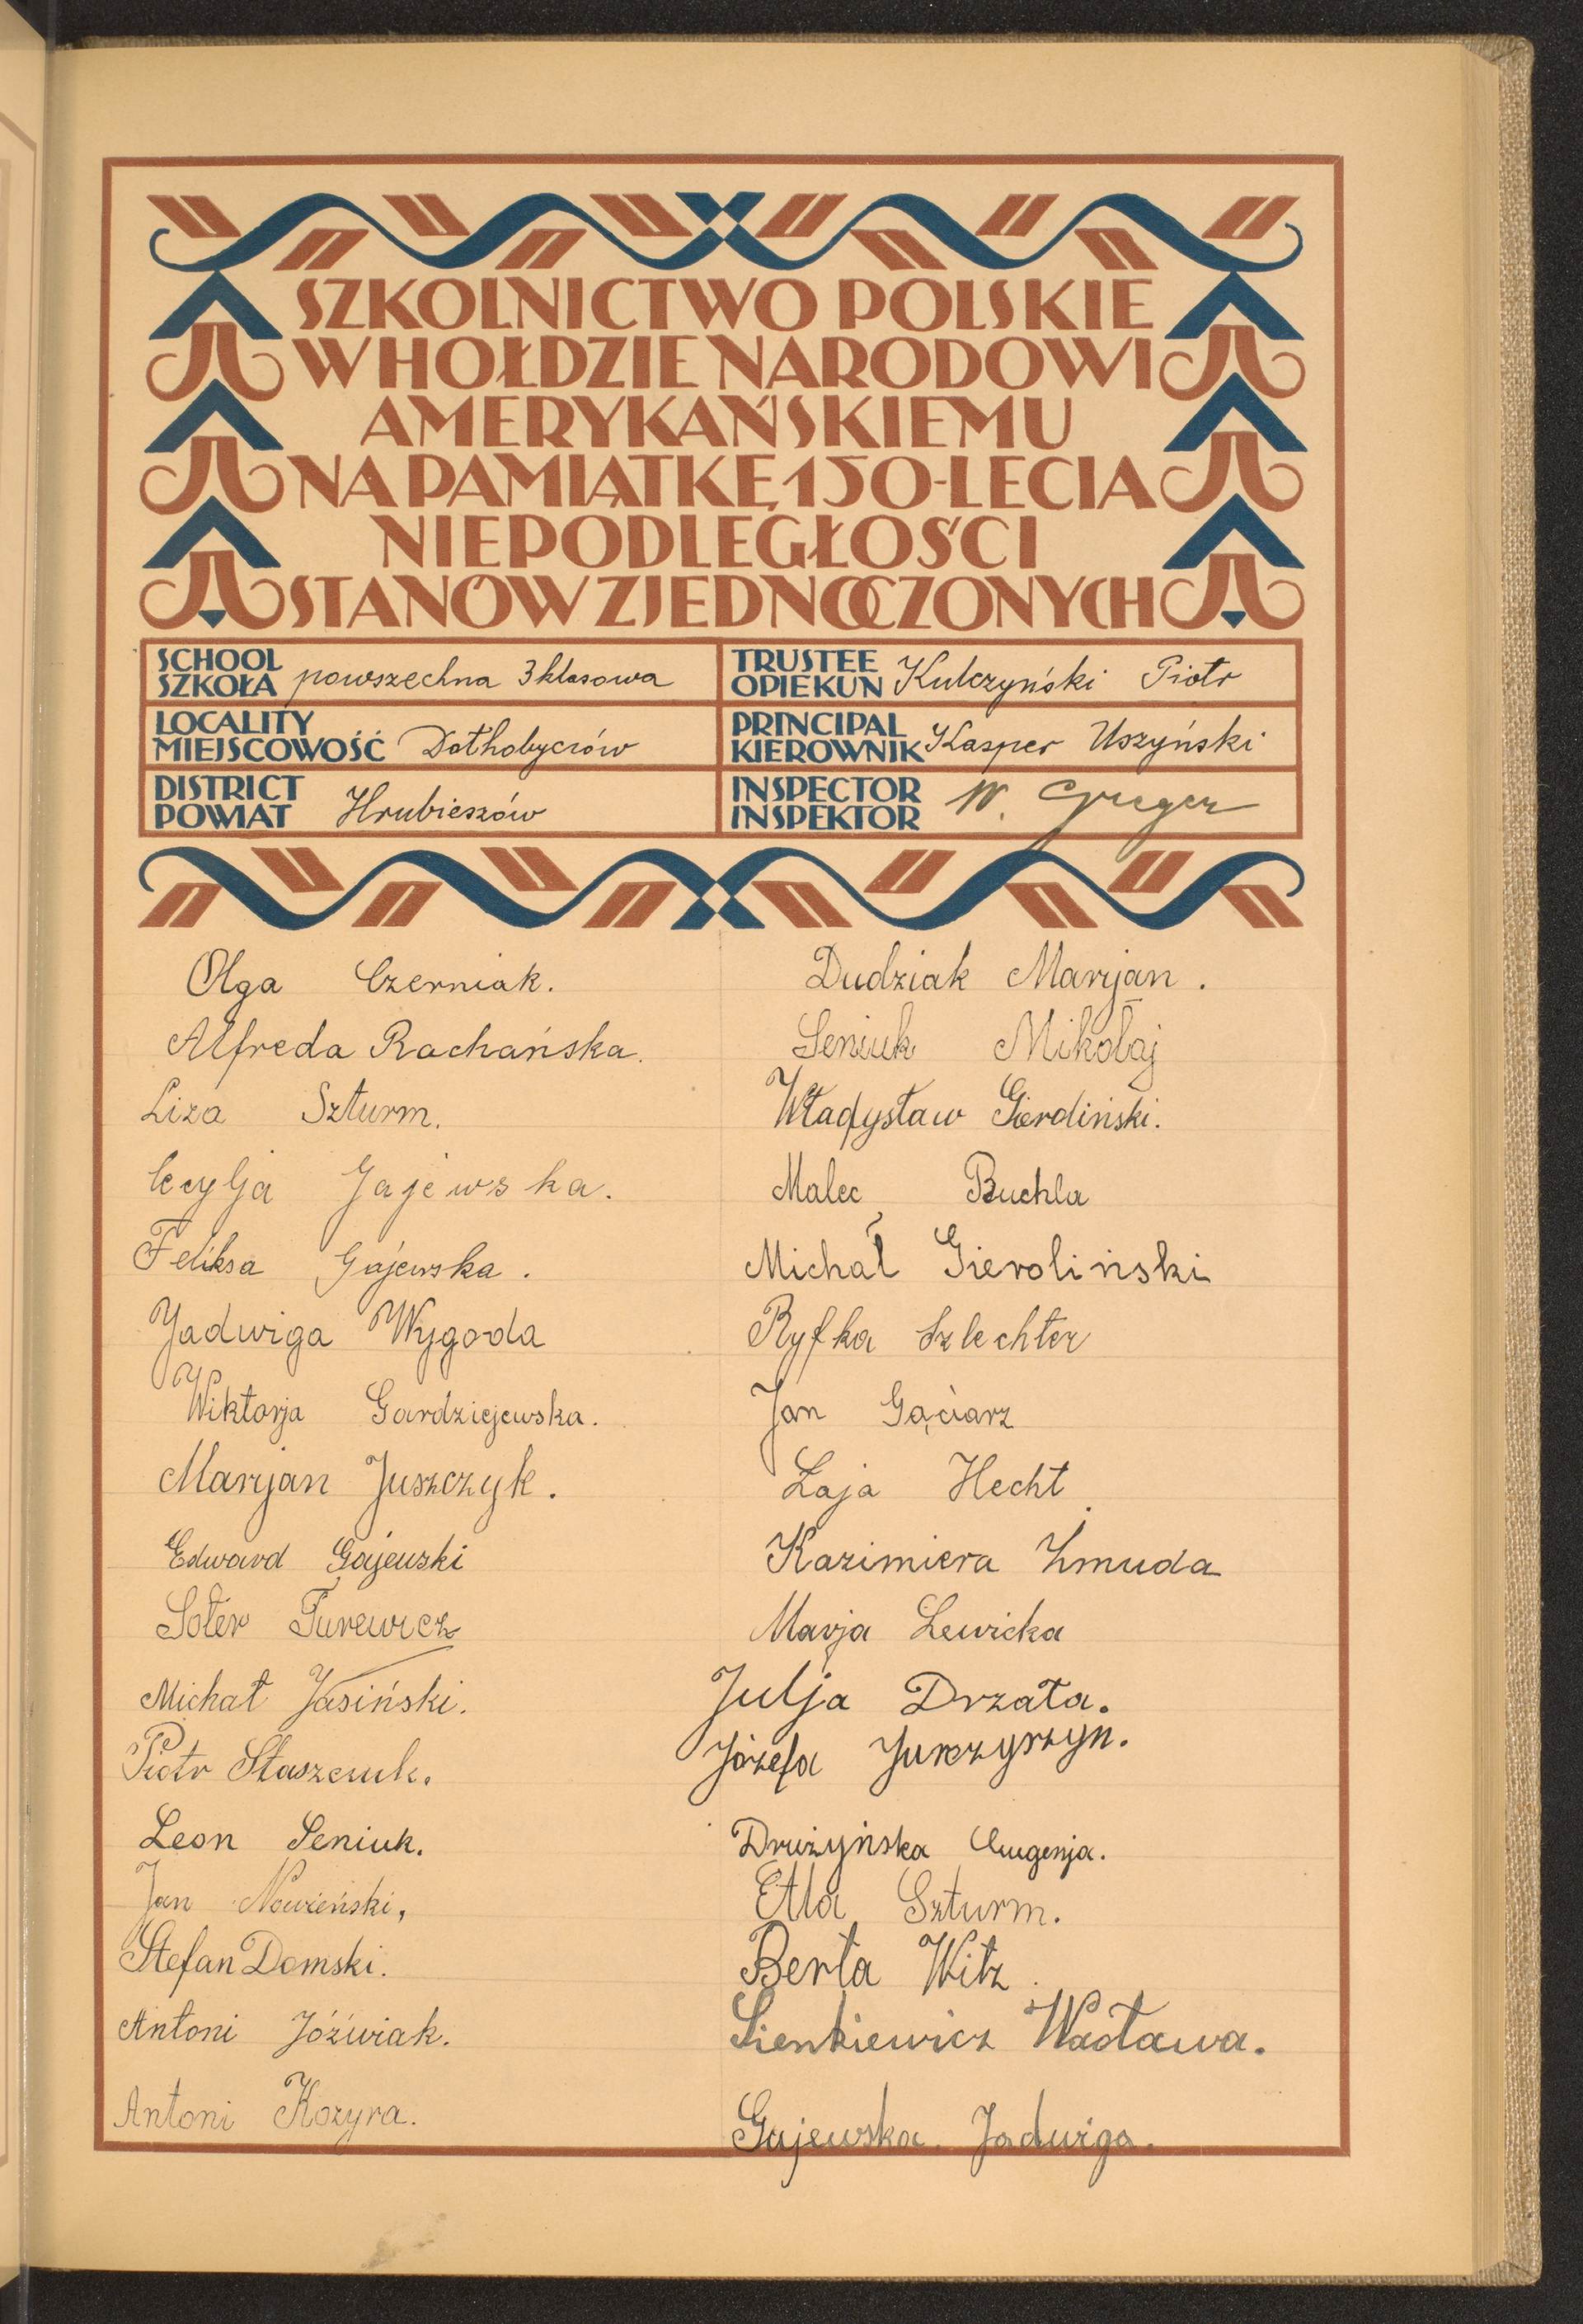 SZKOLNICTWO POLSKIE
W HOŁDZIE NARODOWI
AMERYKAŃSKIEMU
NA PAMIĄTKĘ 150-LECIA
NIEPODLEGŁOŚCI
STANÓW ZJEDNOCZONYCH
SCHOOL
SZKOŁA powszechna 3 klasowa
TRUSTEE
OPIEKUN Kulczyński Piotr
LOCALITY
MIEJSCOWOŚĆ Dołhobyczów
PRINCIPAL
KIEROWNIK Kasper Uszyński
DISTRICT
POWIAT Hrubieszów
INSPECTOR
INSPEKTOR W. Greger
Olga Czerniak.
Alfreda Rachańska.
Liza Szturm.
Cecylja Gajewska.
Feliksa Gajewska.
Jadwiga Wygoda
Wiktorja Gardziejewska.
Marjan Juszczyk.
Edward Gajewski
Soter Turewicz
Michał Jasiński.
Piotr Staszczuk.
Leon Seniuk.
Jan Nowieński,
Stefan Domski.
Antoni Jóźwiak.
Antoni Kozyra.
Dudziak Marjan.
Seniuk Mikołaj
Władysław Gieroliński.
Malec Buchla
Michał Gieroliński
Ryfka Szlechter
Jan Gąciarz
Łaja Hecht
Kazimiera Żmuda
Marja Lewicka
Julja Drzata.
Józefa Jurczyszyn.
Drużyńska Eugenja.
Etla Szturm.
Berta Witz
Sienkiewicz Wacława.
Gajewska Jadwiga.